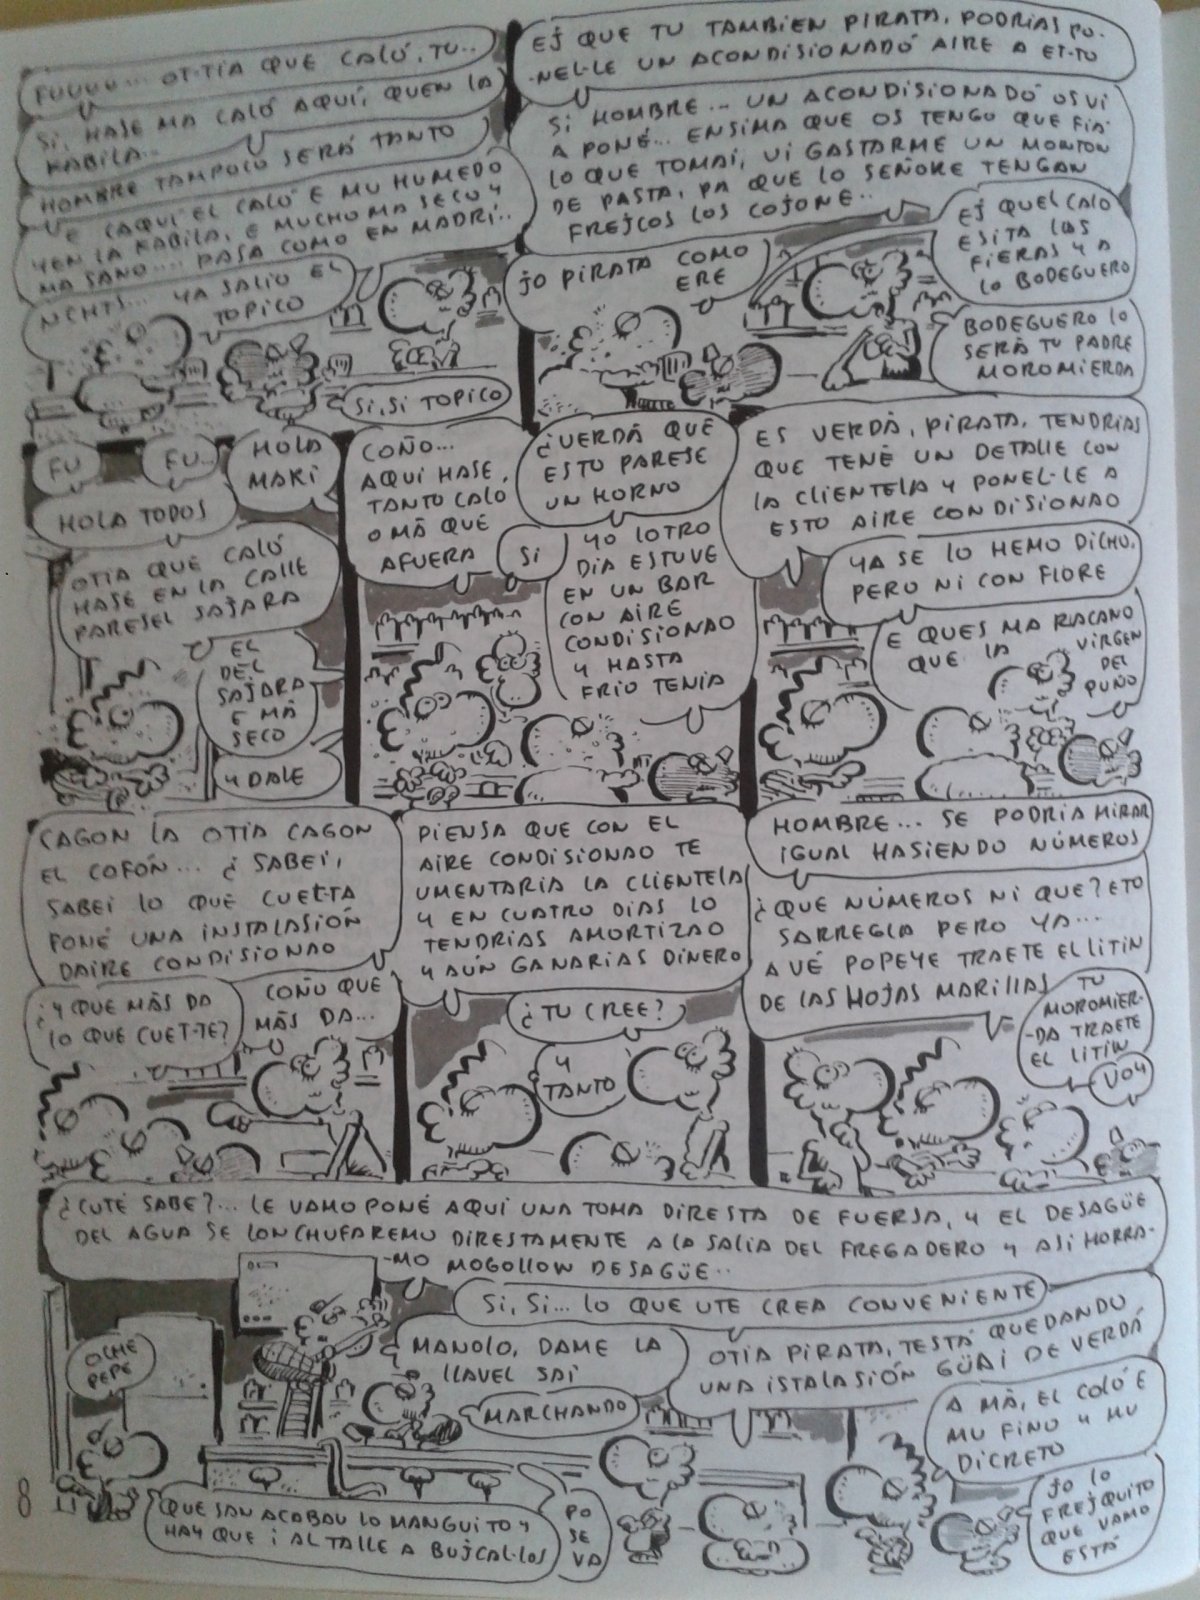 FUUUU... OT-TIA QUE CALÓ, TU..
SI, HASE MA CALÓ AQUÍ, QUEN LA
KABILA...
HOMBRE TAMPOCO SERÁ TANTO
Y EN LA KABILA, E MUCHO MA SECO Y
MA SANO.... PASA COMO EN MADRÍ..
NCHTS... YA SALIO EL
TOPICO
SI, SI TOPICO
EJ QUE TU TAMBIEN PIRATA, PODRIAS PO-
-NEL-LE UN ACONDISIONADÓ AIRE A ET-TO
SI HOMBRE... UN ACONDISIONADÓ OS VI
A PONÉ... ENSIMA QUE OS TENGO QUE FIA
LO QUE TOMAI, VI GASTARME UN MONTON
DE PASTA, PA QUE LO SEÑORE TENGAN
FREJCOS LOS COJONE..
JO PIRATA COMO
ERE
EJ QUEL CALO
ESITA LAS
FIERAS Y A
LO BODEGUERO
BODEGUERO LO
SERÁ TU PADRE
MOROMIERDA
FU
FU...
HOLA
MARI
HOLA TODOS
OTIA QUE CALÓ
HASE EN LA CALLE
PARESEL SAJARA
EL
DEL
SAJARA
E MÁ
SECO
Y DALE
COÑO...
AQUI HASE,
TANTO CALO
O MÁ QUE
AFUERA
¿VERDÁ QUE
ESTO PARESE
UN HORNO
SI
YO LOTRO
DIA ESTUVE
EN UN BAR
CON AIRE
CONDISIONAO
Y HASTA
FRIO TENIA
ES VERDÁ, PIRATA, TENDRIAS
QUE TENÉ UN DETALLE CON
LA CLIENTELA Y PONEL-LE A
ESTO AIRE CONDISIONAO
YA SE LO HEMO DICHO,
PERO NI CON FLORE
E QUES MA RACANO
QUE LA VIRGEN
DEL
PUÑO
CAGON LA OTIA CAGON
EL COFÓN... ¿SABEI,
SABEI LO QUE CUET-TA
PONÉ UNA INSTALASIÓN
DAIRE CONDISIONAO
¿Y QUE MÁS DA
LO QUE CUET-TE?
COÑO QUE
MÁS DA...
PIENSA QUE CON EL
AIRE CONDISIONAO TE
UMENTARIA LA CLIENTELA
Y EN CUATRO DIAS LO
TENDRIAS AMORTIZAO
Y AÚN GANARIAS DINERO
¿TU CREE?
Y
TANTO
HOMBRE... SE PODRIA MIRAR
IGUAL HASIENDO NÚMEROS
¿QUE NÚMEROS NI QUE? ETO
SARREGLA PERO YA...
A VÉ POPEYE TRAETE EL LITIN
DE LAS HOJAS MARILLAS
TU
MOROMIER-
-DA TRAETE
EL LITIN
VOY
¿CUTÉ SABE?... LE VAMO PONÉ AQUÍ UNA TOMA DIRESTA DE FUERSA, Y EL DESAGÜE
DEL AGUA SE LONCHUFAREMO DIRESTAMENTE A LA SALIA DEL FREGADERO Y ASI HORRA-
-MO MOGOLLOW DESAGÜE..
SI, SI... LO QUE UTE CREA CONVENIENTE
OCHE
PEPE
MANOLO, DAME LA
LLAVEL SAI
MARCHANDO
OTIA PIRATA, TESTÁ QUEDANDO
UNA ISTALASIÓN GÜAI DE VERDÁ
A MÁ, EL COLÓ E
MU FINO Y MU
DICRETO
QUE SAN ACABAU LO MANGUITO Y
HAY QUE I AL TALLE A BUJCAL-LOS
PO
SE
VA
JO LO
FREJQUITO
QUE VAMO
ESTÁ
8